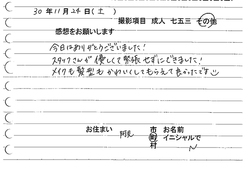 30年11月24日(土)
撮影項目 成人 七五三 その他
感想をお願いします
今日はありがとうございました!
スタッフさんが優しくて緊張せずにできました!
メイクも髪型もかわいくしてもらえて良かったです
お住まい 阿見 市町村 お名前 イニシャルで N